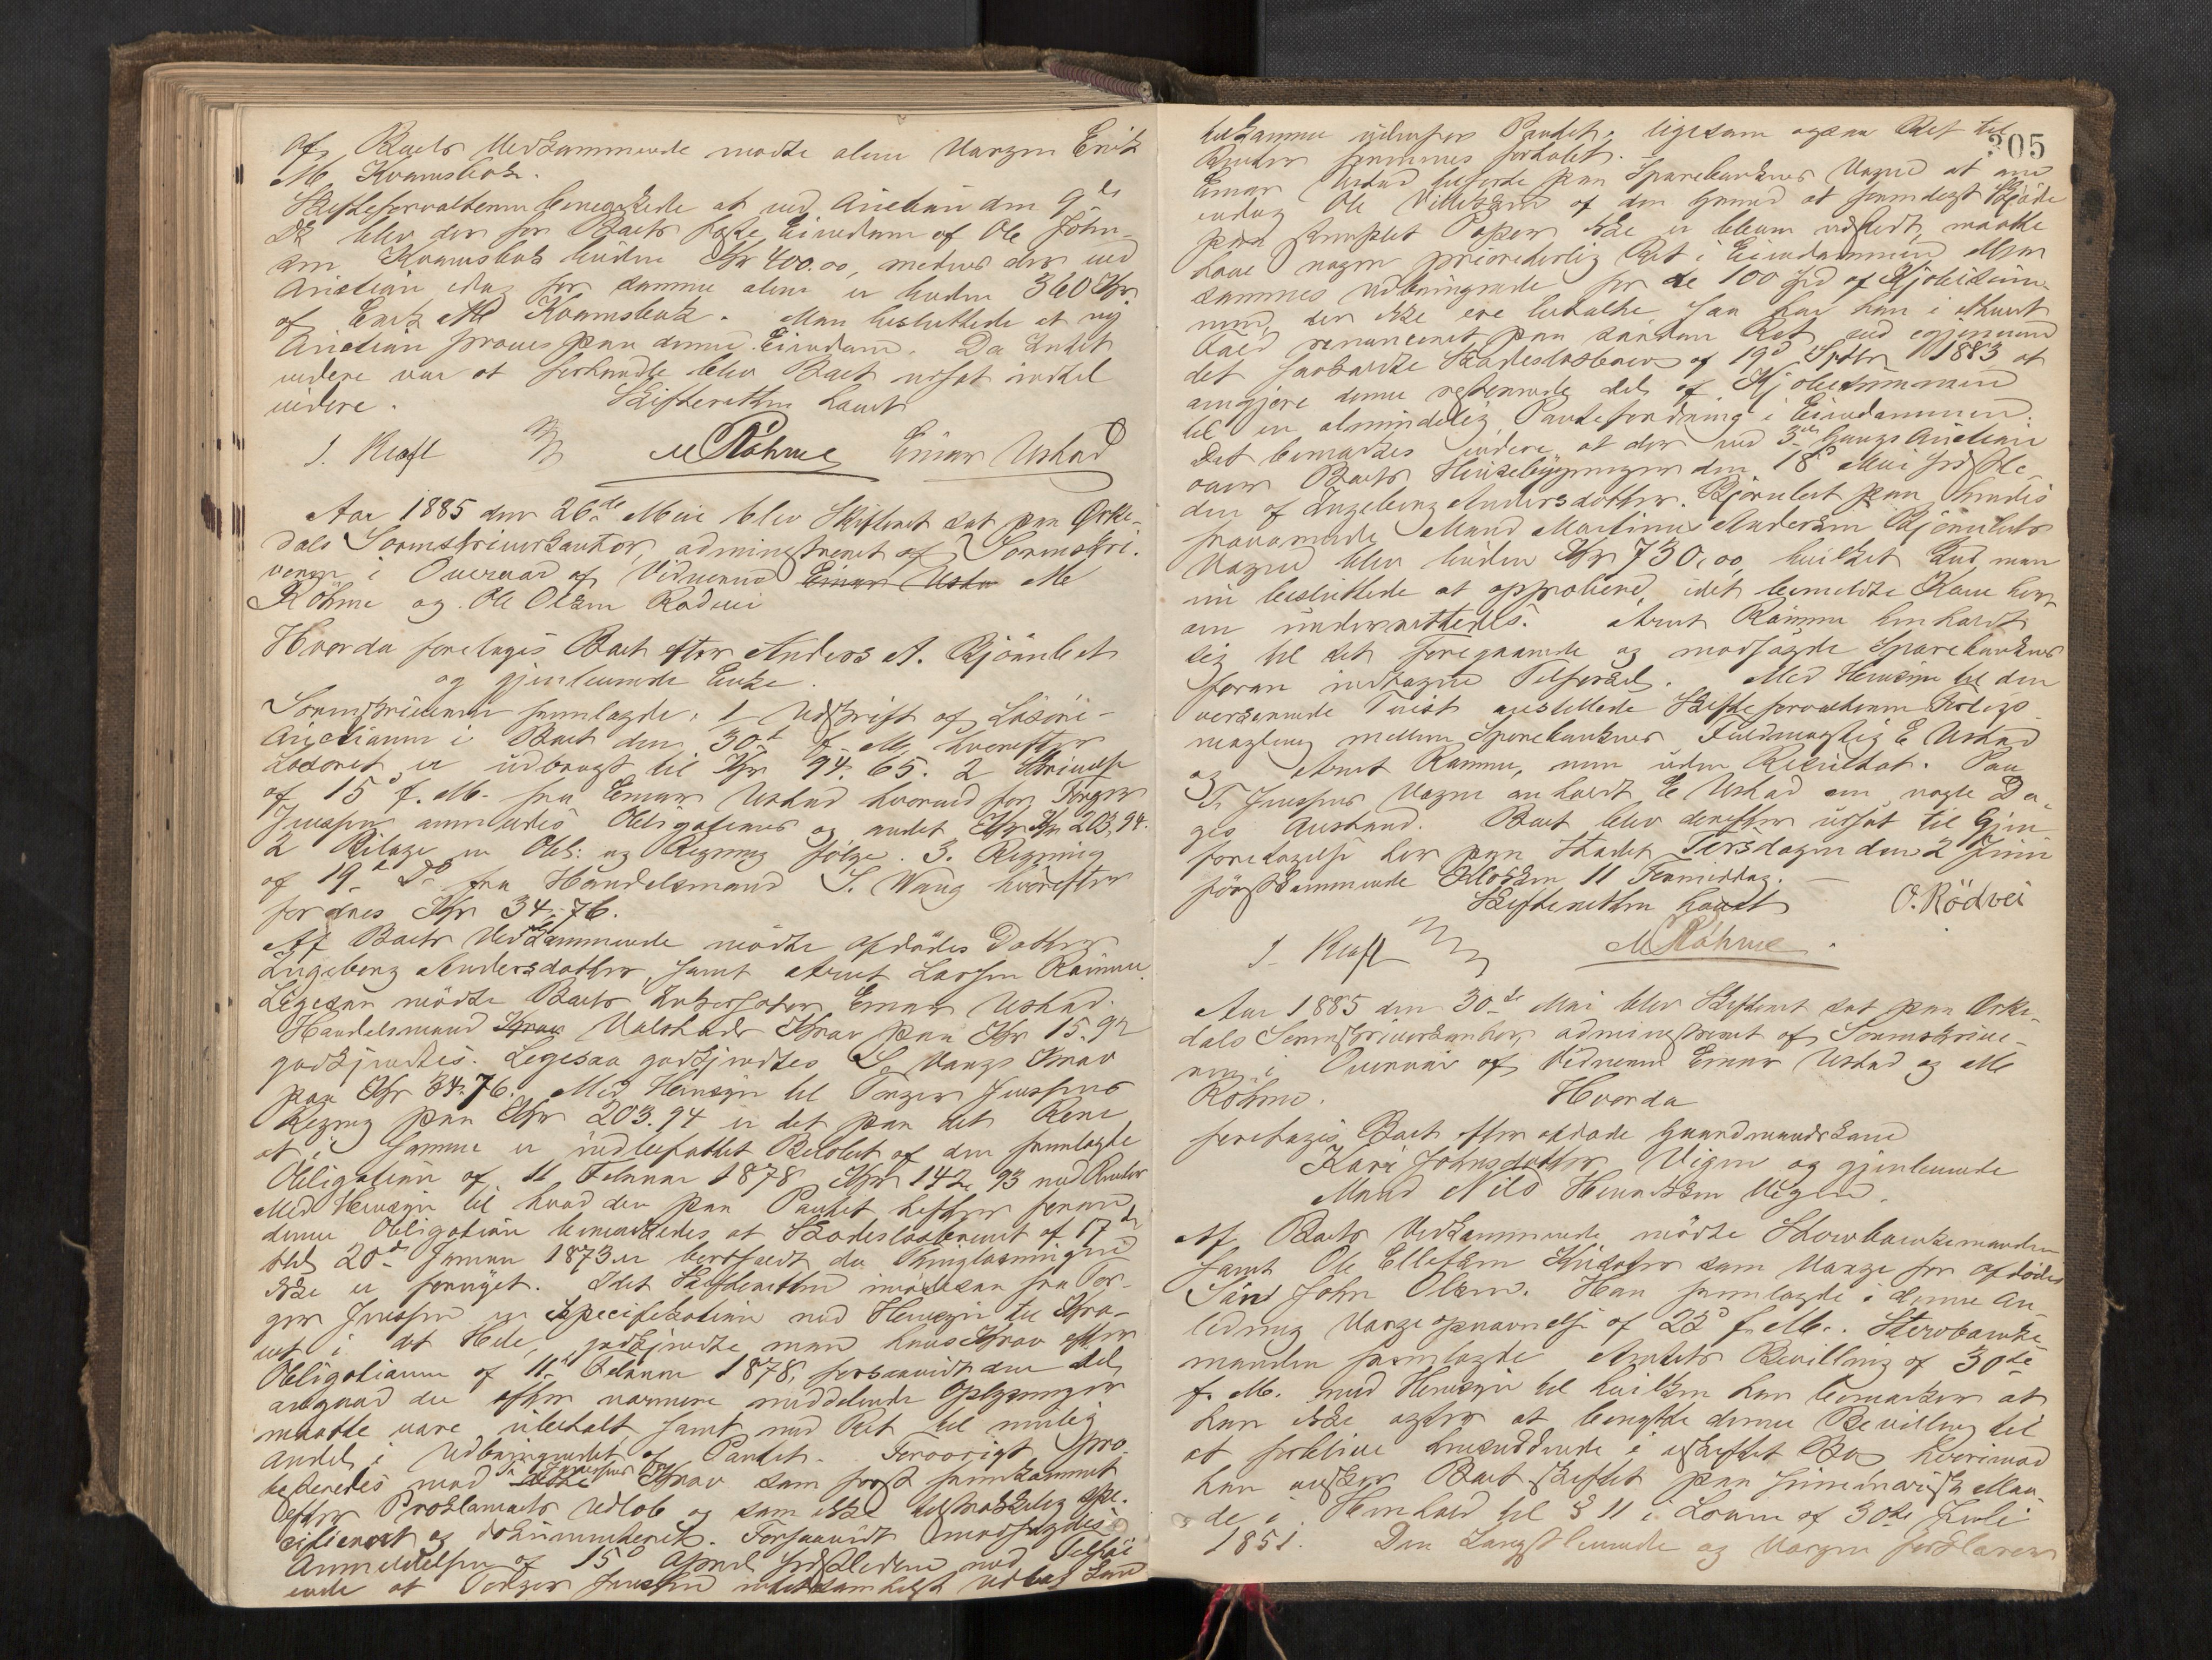 Af Boets Vedkommende mødte alene Værgen Erik
M. Kvamsbak.
Skifteforvalteren bemærkede at ved Auction den 9de
ds blev der for Boets faste Eiendom af Ole John-
sen Kvamsbak buden Kr 400.00, medens der ved
Auction idag for samme alene er buden 360 Kr.
af Erik M Kvamsbak. Man besluttede at ny
Auction prøves paa denne Eiendom. Da Intet
videre var at forhandle blev Boet udsat indtil
videre. Skifteretten hævet
J. Kraft M Röhme Einar Ustad
Aar 1885 den 26de Mai blev Skifteret sat paa Orke-
dals Sorenskriverkontor, administreret af Sorenskri-
veren i Overvær af Vidnerne Einar Usta M
Röhme og Ole Olsen Rødvei
Hvorda foretoges Boet efter Anders A. Bjørnbet
og gjenlevende Enke.
Sorenskriveren fremlagde: 1 Udskrift af Løsøre-
Auctionen i Boet den 30te f. M. hvorefter
Løsøret er udbragt til Kr 94.65. 2 Skrivelse
af 15d f. M. fra Einar Ustad hvorved for Torger
Jenssen anmeldes Obligationer og andet Kr Kr 203,94.
2 Bilage en Obl: og Regning følge. 3. Regning
af 19de Ds fra Handelsmand S. Wang hvorefter
fordres Kr 34,76.
Af Boets Vedkommende mødte afdødes Datter
Ingeborg Andersdatter, samt Arnt Larsen Rømme.
Ligesaa mødte Boets Inkassator Einar Ustad.
Handelsmand Krav Ulstads Krav paa Kr 15.92
godkjendtes. Ligesaa godkjendtes S. Wangs Krav
paa Kr 34.76. Med Hensyn til Torger Jenssens
Regning paa Kr 203.94 er det paa det Rene
at i samme er indbefattet Beløbet af den fremlagte
Obligation af 11 Februar 1878 Kr 142,93 med Renter
Med Hensyn til hvad der paa Pantet hefter foran
denne Obligation bemærkedes at Skadesløsbrevet af 17de
tbl 20de Januar 1873 er bortfaldt da Thinglæsningen
ikke er fornyet. Idet Skifteretten imødesaa fra Tor-
ger Jenssen en Specifikation med Hensyn til Kra-
vet i det Hele, godkjendte man hans Krav efter
Obligationen af 11te Februar 1878, forsaavidt den del
angaar der efter nærmere meddelende Oplysninger
maatte være ubetalt samt med Ret til mulig
Andel i Udbringendet af Pantet. Forøvrigt pro-
testeredes mod dette T. Jenssens Krav som først fremkommet
efter Proklamaets Udløb og som ikke tilstrækkelig spe-
cificeret og dokumenteret. Forsaavidt modsagdes
Anmeldelsen af 15d April sidstleden med Tilføi-
ende at Torger Jenssen intetsomhelst Udlæg kan
305
tilkomme udenfor Pantet, ligesom ogsaa Ret til
Renter formenes forholdt.
Einar Ustad tilførte paa Sparebankens Vegne at om
endog Ole Villeksen af den Grund at formeligt Skjøde
paa stemplet Papir ikke er bleven udstedt, maatte
have nogen prioriterlig Ret i Eiendommen eller
sammes Udbringende for de 100 spd af Kjøbesum-
men, der ikke ere betalte, saa har han i ethvert
Fald renunceret paa saadan Ret ved gjennem
det paaberaabte Skadesløsbrev af 19d Septbr 1883 at
omgjøre denne resterende del af Kjøbesummen
til en almindelig Pantefordring i Eiendommen.
Det bemærkes videre at der ved 3die Gangs Auction
over Boets Husebygninger den 18d Mai sidstle-
den af Ingeborg Andersdatter Bjørnbet paa hendes
fraværende Mand Martinus Andersen Bjørnbets
Vegne blev buden Kr 730,00, hvilket Bud man
nu besluttede at approbere, idet bemeldte Kone her-
om underrettedes. Arnt Rømme henholdt
sig til det foregaaende og modsagde Sparebankens
foran indtagne Tilførsel. Med Hensyn til den
verserende Tvist anstillede Skifteforvalteren Forligs-
mægling mellem Sparebankens Fuldmægtig E Ustad
og Arnt Rømme, men uden Resultat. Paa
T. Jenssens Vegne anholdt E Ustad om nogle Da-
ges Anstand. Boet blev derefter udsat til Gjen-
foretagelse her paa Stedet Tirsdagen den 2 Juni
førstkommende Klokken 11 Formiddag.
Skifteretten hævet O. Rödvei
J. Kraft M Röhme.
Aar 1885 den 30te Mai blev Skifteret sat paa Orke-
dals Sorenskriverkontor, administreret af Sorenskrive-
ren i Overvær af Vidnerne Einar Ustad og M
Röhme. Hvorda
foretoges Boet efter afdøde Gaardmandskone
Kari Johnsdatter Vigen og gjenlevende
Mand Nils Henriksen Vigen.
Af Boets Vedkommende mødte Stervboenkemanden
samt Ole Ellefsen som Værge for afdødes
Søn John Olsen. Han fremlagde i denne An-
ledning Værgeopnævnelse af 22d f. M. Stervboenke-
manden fremlagde Amtets Bevilling af 30te
f. M. med Hensyn til hvilken han bemærker at
han ikke agter at benytte denne Bevilling til
at forblive hensiddende i uskiftet Bo, hvorimod
han ønsker Boet skiftet paa summarisk Maa-
de i Henhold til § 11 i Loven af 30te Juli
1851. Den Længstlevende og Værgen forklarer